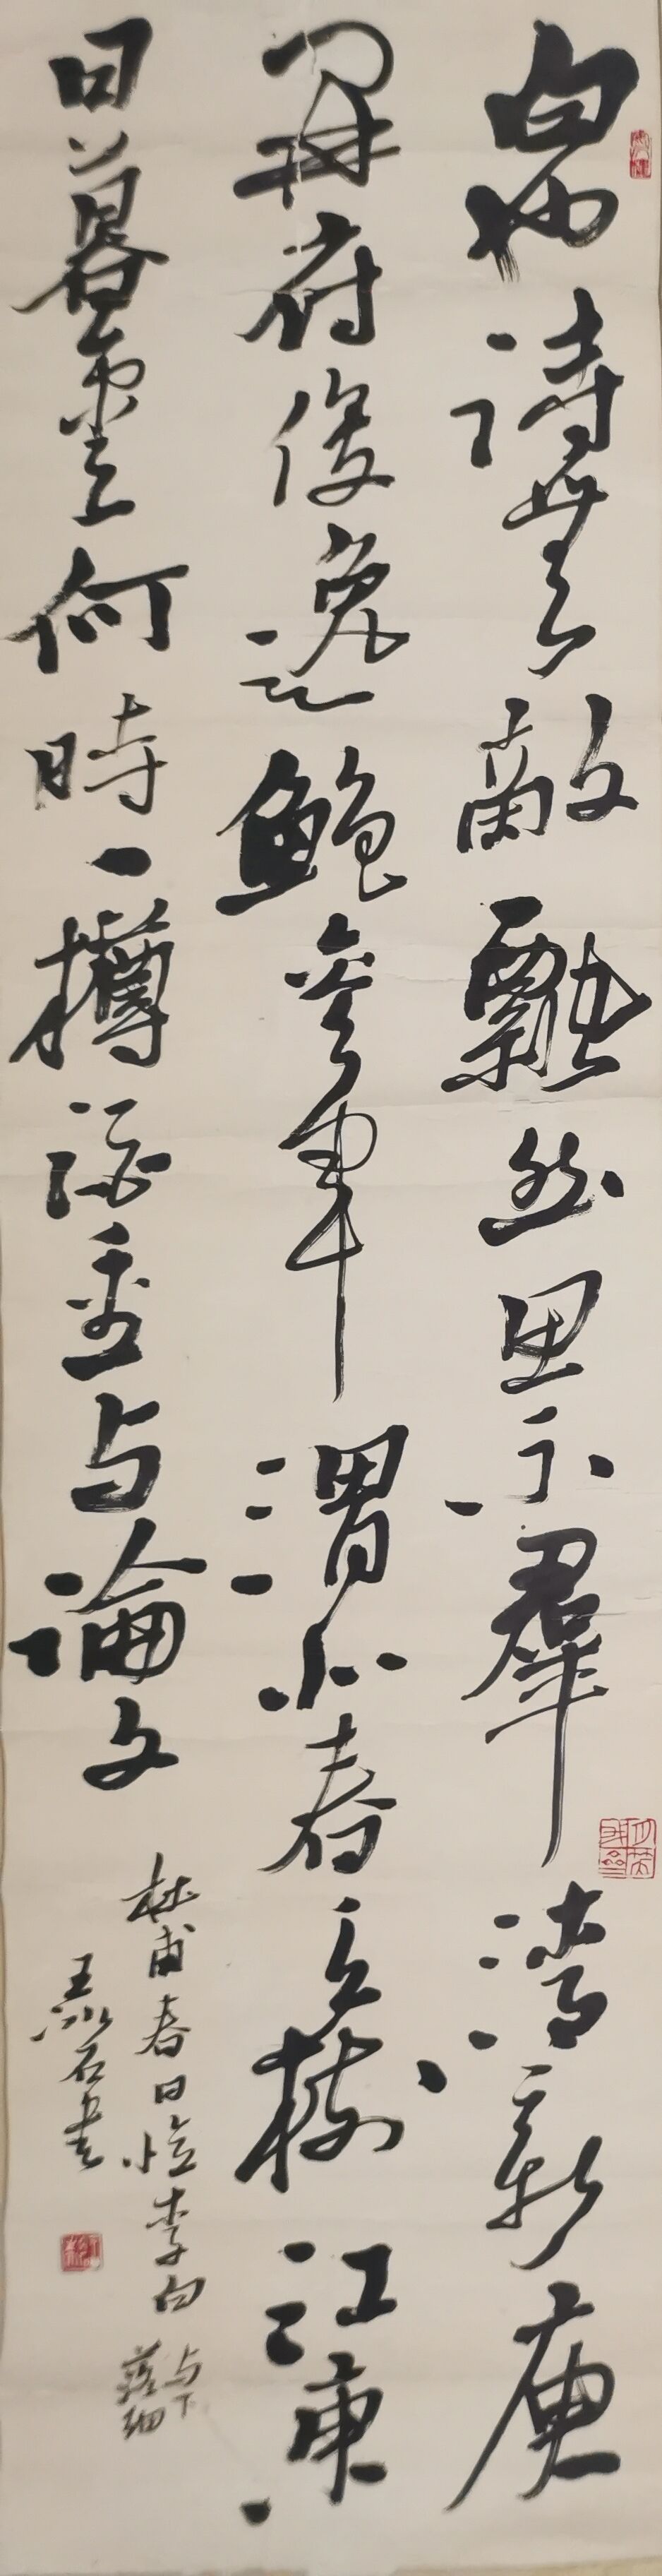 白也詩無敵飄然思不羣清新庾
開府俊逸鮑參軍渭北春天樹江東
日暮雲何時一樽酒重与論文
杜甫春日憶李白 与下落細
王 石书